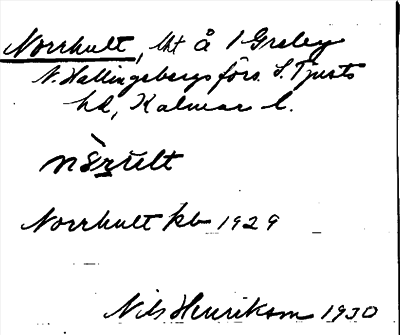 Norrhult, lht å 1 Greby
N. Hallingebergs förs. S. Tjusts
hd, Kalmar l.
Norrhult kb 1929
Nils Henrikson 1930